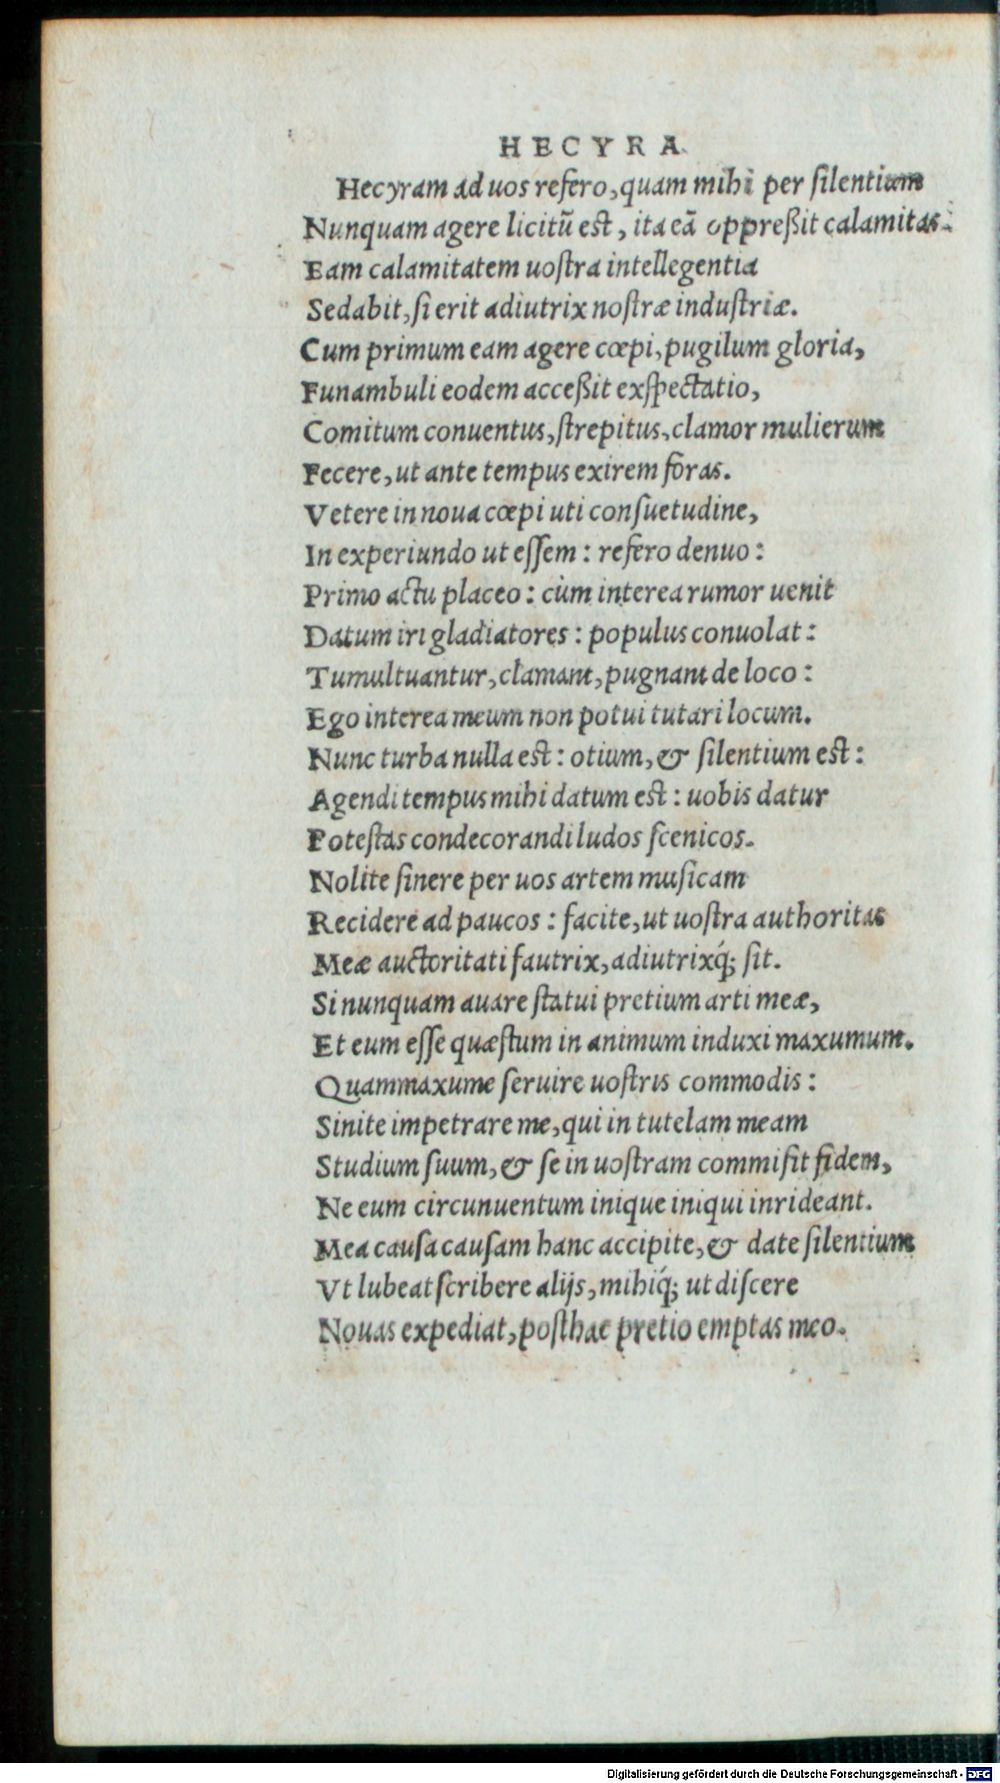 HECYRA
Hecyram ad uos refero, quam mihi per silentium
Nunquam agere licitũ est, ita eã oppreßit calamitas.
Eam calamitatem uostra intellegentia
Sedabit, si erit adiutrix nostræ industriæ.
Cum primum eam agere cœpi, pugilum gloria,
Funambuli eodem acceßit exspectatio,
Comitum conuentus, strepitus, clamor mulierum
Fecere, ut ante tempus exirem foras.
Vetere in noua cœpi uti consuetudine,
In experiundo ut essem: refero denuo:
Primo actu placeo: cùm interea rumor uenit
Datum iri gladiatores: populus conuolat:
Tumultuantur, clamant, pugnant de loco:
Ego interea meum non potui tutari locum.
Nunc turba nulla est: otium, & silentium est:
Agendi tempus mihi datum est: uobis datur
Potestas condecorandi ludos scenicos.
Nolite sinere per uos artem musicam
Recidere ad paucos: facite, ut uostra authoritas
Meæ auctoritati fautrix, adiutrixq́; sit.
Si nunquam auare statui pretium arti meæ,
Et eum esse quæstum in animum induxi maxumum.
Quammaxume seruire uostris commodis:
Sinite impetrare me, qui in tutelam meam
Studium suum, & se in uostram commisit fidem,
Ne eum circunuentum inique iniqui inrideant.
Mea causa causam hanc accipite, & date silentium
Vt lubeat scribere alijs, mihiq́; ut discere
Nouas expediat, posthac pretio emptas meo.
Digitalisierung gefördert durch die Deutsche Forschungsgemeinschaft - DFG